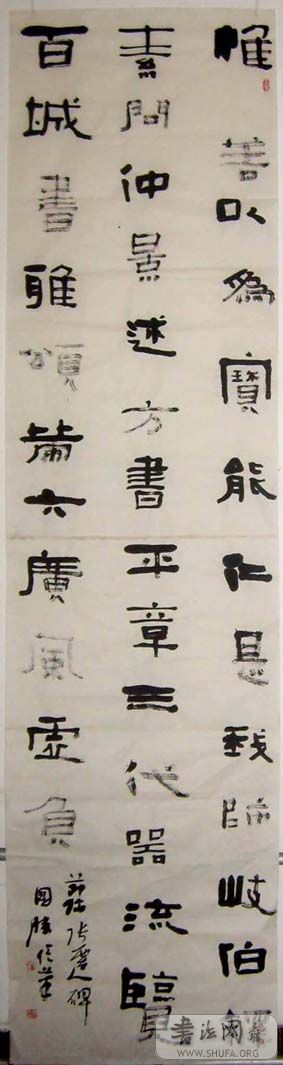 惟善以為寶能仁是我師岐伯
素問仲景述方書平章三代器流覽
百城書雅頌六廣風虛負
節臨張遷碑
國勝
書法網
WWW.SHUFA.ORG